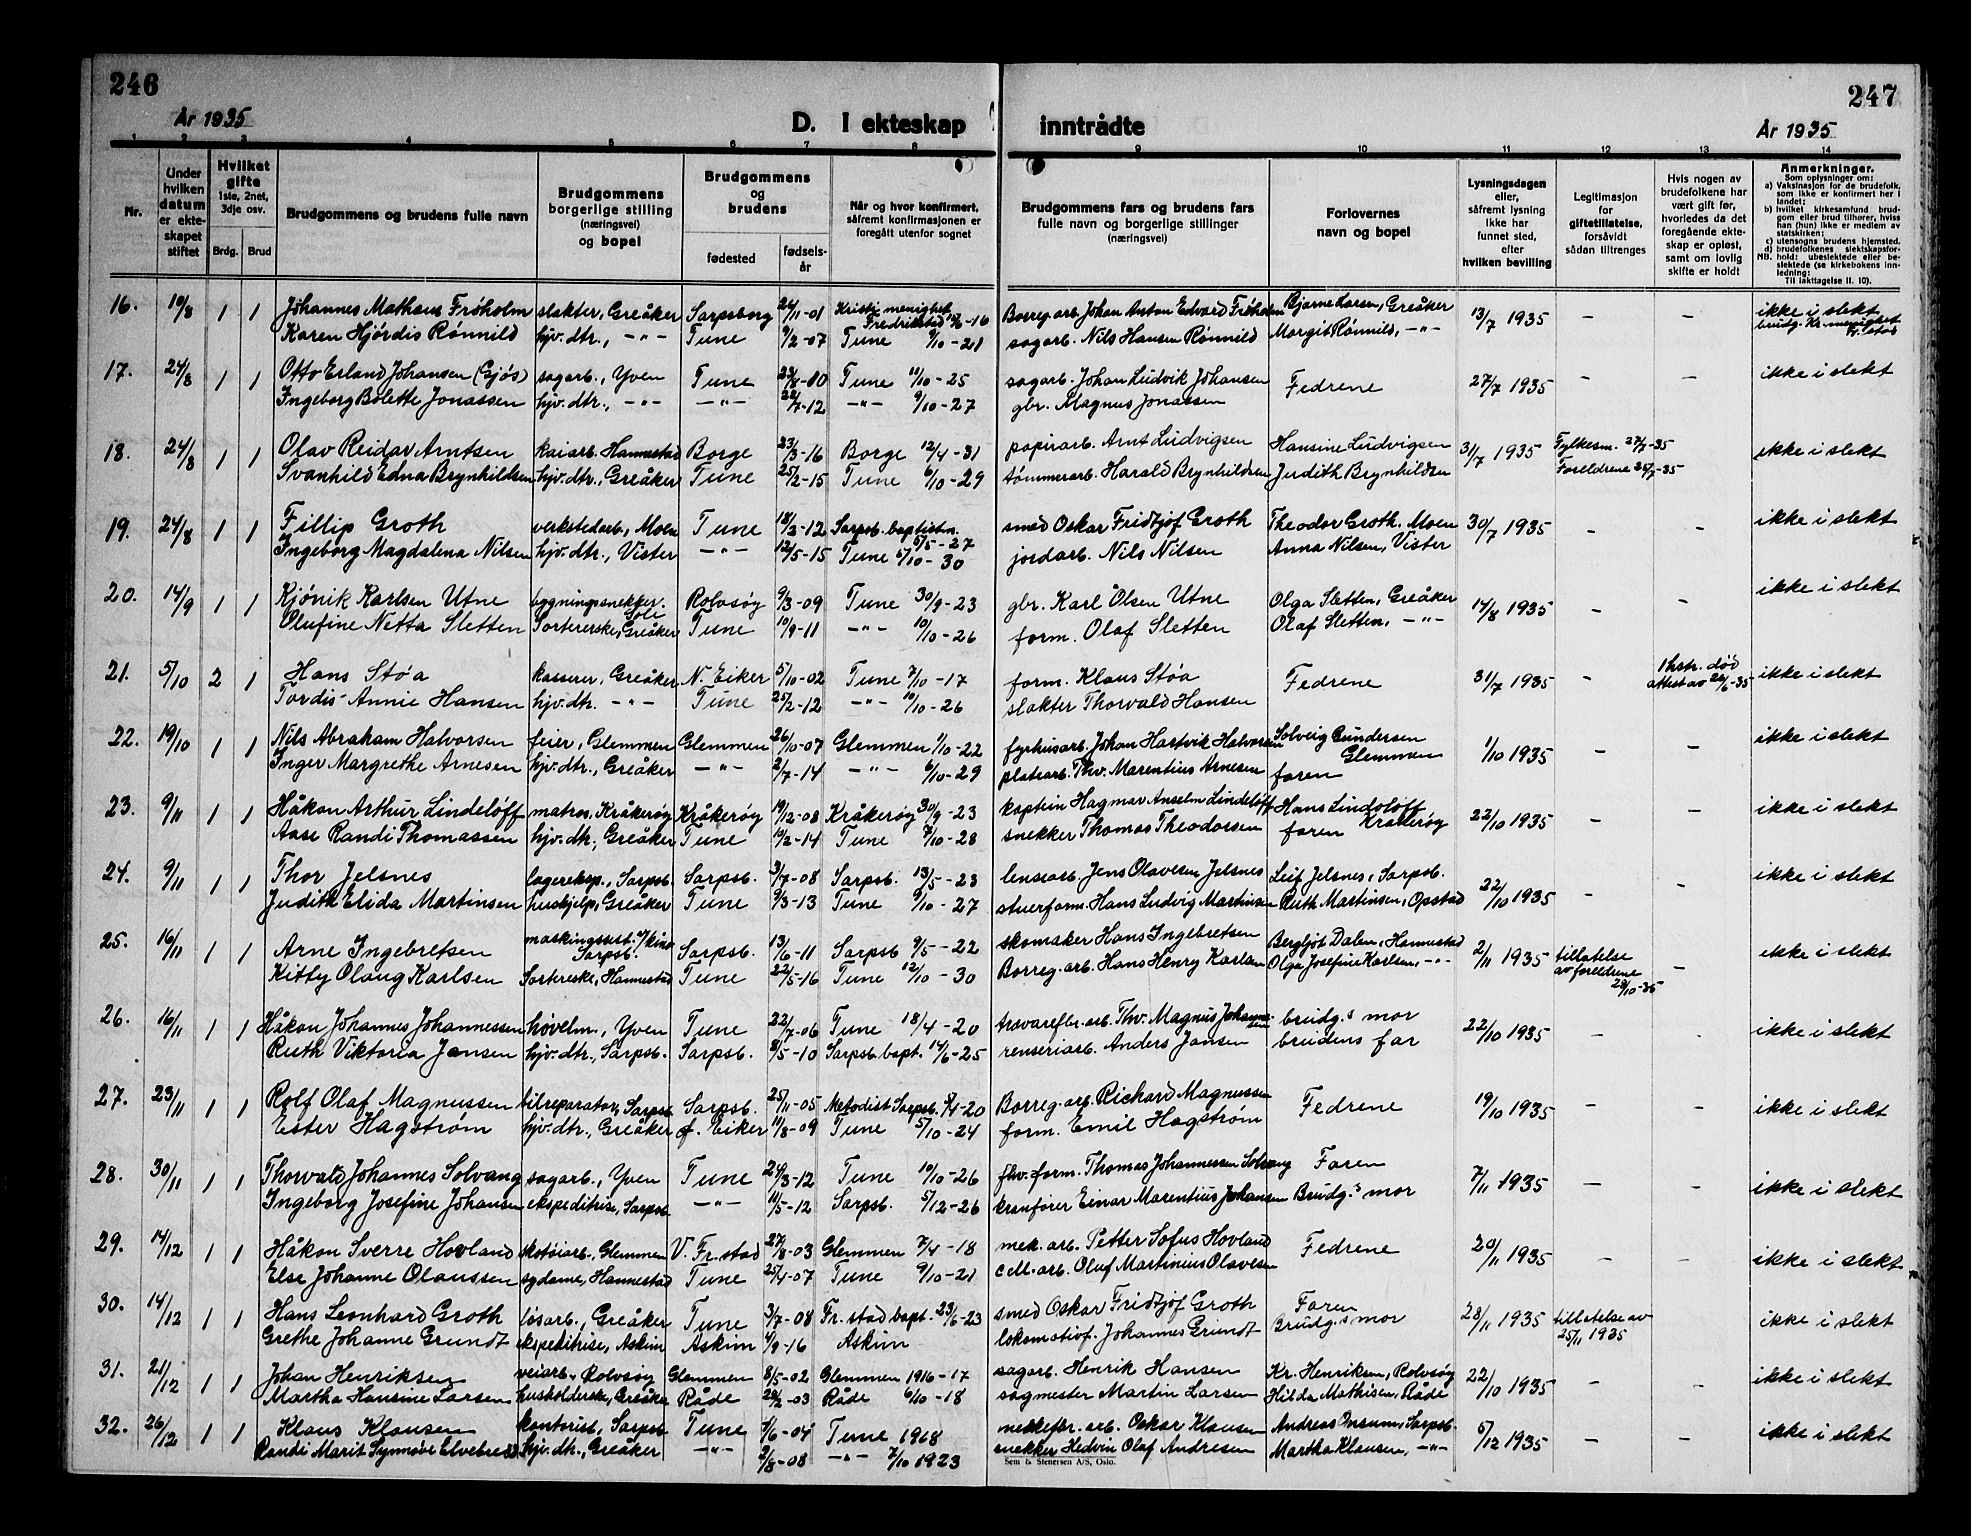 246
247
År 1935
D. I ekteskap inntrådte
År 1935
1 2 3 4 5 6 7 8 9 10 11 12 13 14
Nr.
Under hvilken datum er ekteskapet stiftet
Hvilket gifte 1ste, 2net, 3dje osv.
Brdg. Brud
Brudgommens og brudens fulle navn
Brudgommens borgerlige stilling (næringsvei) og bopel
Brudgommens og brudens
fødested
fødselsår
Når og hvor konfirmert, såfremt konfirmasjonen er foregått utenfor sognet
Brudgommens fars og brudens fars fulle navn og borgerlige stillinger (næringsvei)
Forlovernes navn og bopel
Lysningsdagen eller, såfremt lysning ikke har funnet sted, efter hvilken bevilling
Legitimasjon for giftetillatelse, forsåvidt sådan tiltrenges
Hvis nogen av brudefolkene har vært gift før, hvorledes da det foregående ekteskap er opløst, samt om lovlig skifte er holdt
Anmerkninger.
Som oplysninger om:
a) Vaksinasjon for de brudefolk, som ikke er konfirmert her i landet;
b) hvilket kirkesamfund brudgom eller brud tilhører, hviss han (hun) ikke er medlem av statskirken;
c) utensogns brudens hjemsted.
d) brudefolkenes slektskapsforhold: ubeslektede eller beslektede (se kirkebokens innledning:
NB.
Til iakttagelse II. 10).
16. 10/8 1 1 Johannes Mathæus Frøholm slakter, Greåker Sarpsborg 24/11-01 Kristi menighet Fredrikstad -16 Borreg.arb. Johan Anton Edvard Frøholm Bjarne Larsen, Greåker 13/7 1935 – – ikke i slekt brudg. Kr. menighet Fr.stad
Karen Hjørdis Rønnild hjv. dtr., -"- Tune 9/2-07 Tune 9/10-21 sagarb. Nils Hansen Rønnild Margit Rønnild, -"-
17. 24/8 1 1 Otto Erland Johansen (Gjøs) sagarb., Yven Tune 23/8-00 Tune 11/10-25 sagarb. Johan Ludvik Johansen Fedrene 27/7 1935 – – ikke i slekt
Ingeborg Bolette Jonassen hjv. dtr., -"- -"- 22/7-12 -"- 9/10-27 gbr. Magnus Jonassen
18. 24/8 1 1 Olav Reidar Arntsen kaiarb. Hannestad Borge 23/3-16 Borge 12/4-31 papirarb. Arnt Ludvigsen Hansine Ludvigsen 31/7 1935 Fylkesm. 27/7-35 ikke i slekt
Svanhild Edna Brynhildsen hjv. dtr., Greåker Tune 25/2-15 Tune 6/10-29 tømmerarb. Harald Brynhildsen Judith Brynhildsen Foreldrene 25/7-35
19. 24/8 1 1 Fillip Groth verkstedarb., Moen Tune 18/3-12 Sarpsb. baptistm. 5/5-27 smed Oskar Fridtjof Groth Theodor Groth. Moen 30/7 1935 – – ikke i slekt
Ingeborg Magdalena Nilsen hjv. dtr., Vister -"- 12/5-15 Tune 5/10-30 jordarb. Nils Nilsen Anna Nilsen, Vister
20. 14/9 1 1 Kjønik Karlsen Utne bygningssnekker. Soli Rolvsøy 9/3-09 Tune 30/9-23 gbr. Karl Olsen Utne Olga Sletten, Greåker 14/8 1935 – – ikke i slekt
Olufine Netta Sletten Sortererske, Greåker Tune 10/9-11 -"- 10/10-26 form. Olaf Sletten Olaf Sletten, -"-
21. 5/10 2 1 Hans Støa kasserer, Greåker N. Eiker 5/10-02 Tune 7/10-17 form. Klaus Støa Fedrene 31/7 1935 – 1 hstr. død attest av 26/6-35 ikke i slekt
Tordis Annie Hansen hjv. dtr. -"- Tune 25/2-12 -"- 10/10-26 slakter Thorvald Hansen
22. 19/10 1 1 Nils Abraham Halvorsen feier, Glemmen Glemmen 26/10-07 Glemmen 1/10-22 fyrhusarb. Johan Hartvik Halvorsen Solveig Gundersen Glemmen 1/10 1935 – – ikke i slekt
Inger Margrethe Arnesen hjv. dtr., Greåker -"- 2/7-14 -"- 6/10-29 platearb. Thv. Marentius Arnesen faren
23. 9/11 1 1 Håkon Arthur Lindeløff matros, Kråkerøy Kråkerøy 19/12-08 Kråkerøy 30/9-23 kaptein Hagmar Anselm Lindeløff Hans Lindeløff Kråkerøy 22/10 1935 – – ikke i slekt
Aase Randi Thomassen hjv. dtr., Greåker Tune 19/2-14 Tune 7/10-28 snekker Thomas Theodorsen faren
24. 9/11 1 1 Thor Jelsnes lagereksp., Sarpsb. Sarpsb. 3/7-08 Sarpsb. 13/5-23 lensearb. Jens Olavesen Jelsnes Leif Jelsnes, Sarpsb. 22/10 1935 – – ikke i slekt
Judith Elida Martinsen hushjelp, Greåker Tune 9/3-13 Tune 9/10-27 stuerform. Hans Ludvig Martinsen Ruth Martinsen, Opstad
25. 16/11 1 1 Arne Ingebretsen maskingsist. v/kino Sarpsb. Sarpsb. 13/6-11 Sarpsb. 9/5-22 skomaker Hans Ingebretsen Bergljot Dalen, Hannestad 2/11 1935 tillatelse av foreldrene 28/10-35 – ikke i slekt
Kitty Olaug Karlsen Sortereske, Hannestad Tune 22/5-16 Tune 12/10-30 Borreg.arb. Hans Henry Karlsen Olga Josefine Karlsen, -"-
26. 16/11 1 1 Håkon Johannes Johannessen høvelm., Yven Tune 22/7-06 Tune 18/4-20 trævarefbr. arb. Thv. Magnus Johannessen brudg.s mor 22/10 1935 – – ikke i slekt
Ruth Viktoria Jansen hjv. dtr., Sarpsb. Sarpsb. 8/5-10 Sarpsb. bapt. 14/6-25 renseriarb. Anders Jansen brudens far
27. 23/11 1 1 Rolf Olaf Magnussen bilreparatør, Sarpsb. Sarpsb. 25/11-05 Metodist Sarpsb. 4/4-20 Borreg.arb. Richard Magnussen Fedrene 19/10 1935 – – ikke i slekt
Ester Hagstrøm hjv. dtr., Greåker Ø. Eiker 11/8-09 Tune 5/10-24 form. Emil Hagstrøm
28. 30/11 1 1 Thorvald Johannes Solvang sagarb., Yven Tune 24/3-12 Tune 10/10-26 fhv. form. Thomas Johannessen Solvang Faren 7/11 1935 – – ikke i slekt
Ingeborg Josefine Johansen ekspeditrise, Sarpsb. -"- 11/5-12 Sarpsb. 5/12-26 kranfører Einar Marentius Johansen Brudg.s mor
29. 14/12 1 1 Håkon Sverre Hovland skotøiarb., Glemmen V. Fr.stad 27/8-03 Glemmen 7/4-18 mek. arb. Petter Sofus Hovland Fedrene 20/11 1935 – – ikke i slekt
Else Johanne Olaussen sydame, Hannestad Tune 25/4-07 Tune 9/10-21 cell.arb. Oluf Martinius Olavesen
30. 14/12 1 1 Hans Leonhard Groth løsarb., Greåker Tune 3/7-08 Fr.stad bapt. 23/6-23 smed Oskar Fridtjof Groth Faren 28/11 1935 tillatelse av 25/11 1935 ikke i slekt
Grethe Johanne Grundt ekspeditrise, Askim Askim 4/9-16 Askim lokomotivf. Johannes Grundt Brudg.s mor
31. 21/12 1 1 Johan Henriksen veiarb., Rolvsøy Glemmen 8/5-02 Glemmen 1916-17 sagarb. Henrik Hansen Kr. Henriksen, Rolvsøy 22/10 1935 – – ikke i slekt
Martha Hansine Larsen husholderske, Greåker Råde 29/2-03 Råde 6/10-18 sagmester Martin Larsen Hilda Mathisen, Råde
32. 26/12 1 1 Klaus Klausen kontorist, Sarpsb. Tune 1/6-04 Tune 1918 melkefbr. arb. Oskar Klausen Andreas Onsum, Sarpsb. 5/12 1935 – – ikke i slekt
Randi Marit Synnøve Elvebredd hjv. dtr., Greåker -"- 2/8-08 -"- 7/10 1923 snekker Hedvin Olaf Andresen Martha Klausen, -"-
Sem & Stenersen A/S, Oslo.